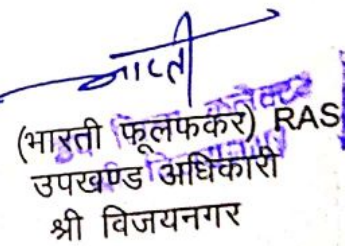 भारती
(भारती फूलफकर) RAS
उपखण्ड अधिकारी
श्री विजयनगर